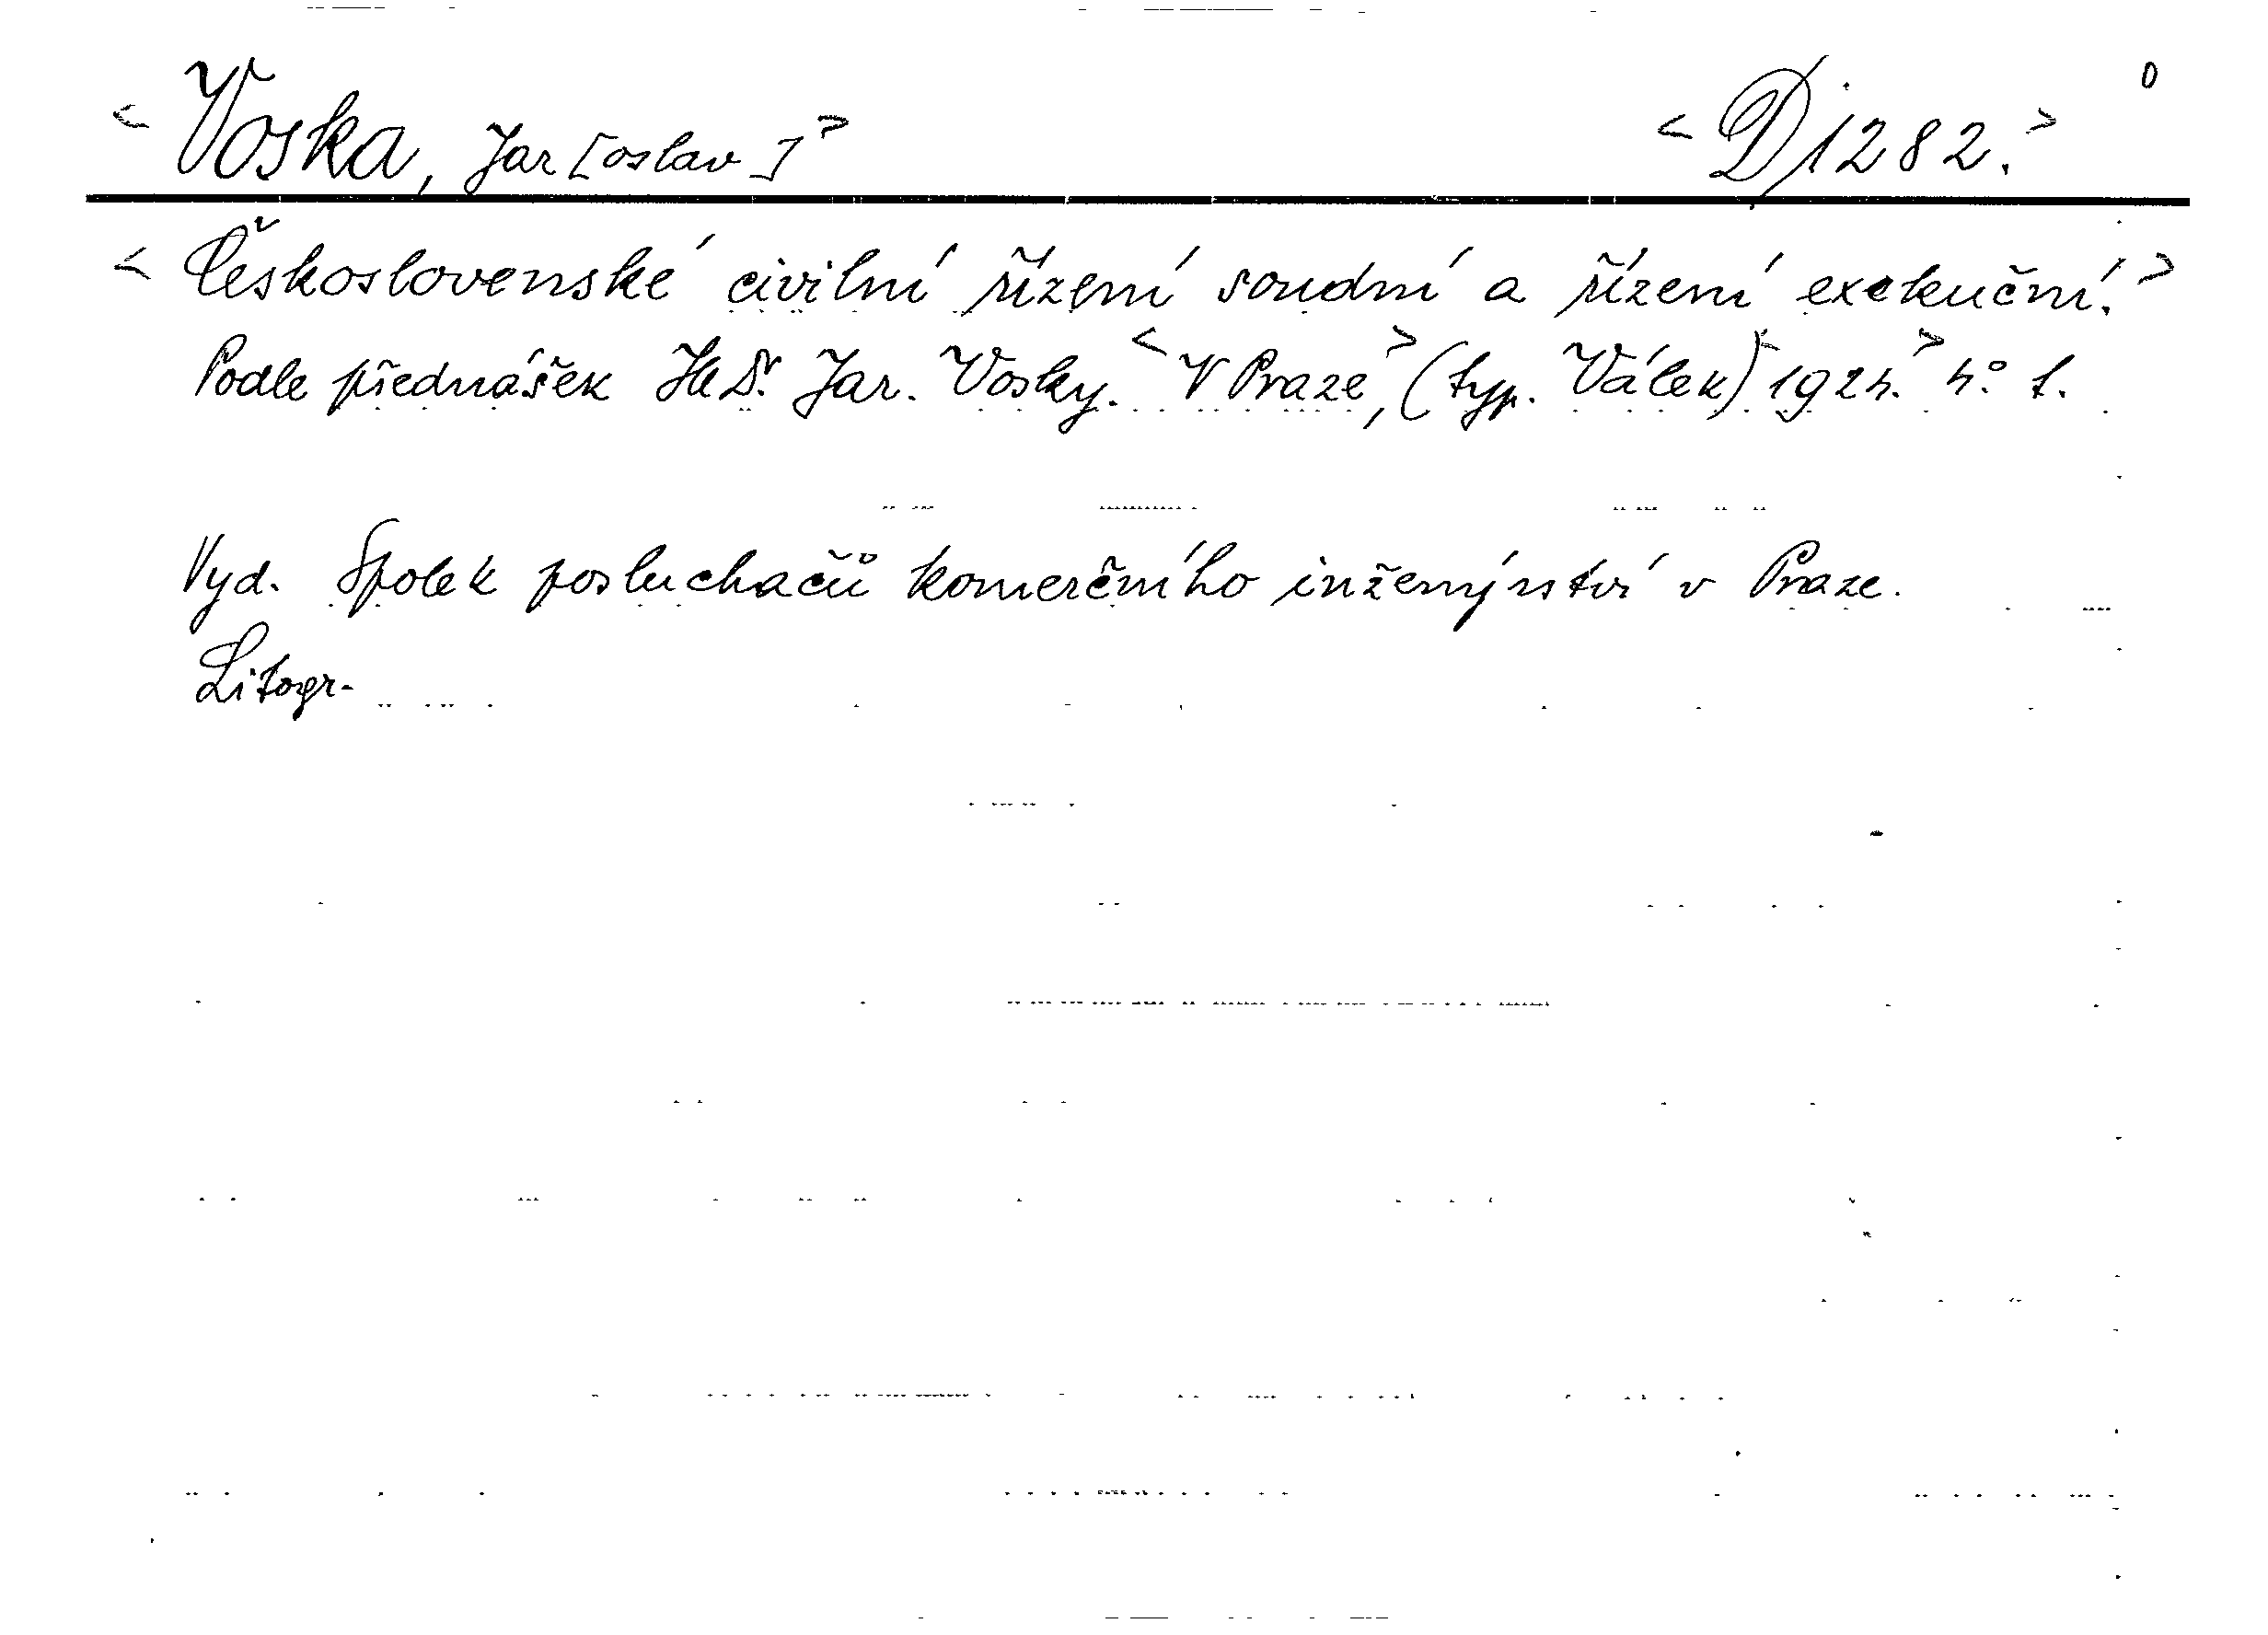 <Voska, Jar[oslav]> <Dj 1282.> 0
<Československé civilní řízení soudní a řízení exekuční.>
Podle přednášek JUDr. Jar. Vosky. <V Praze>, (typ. Válek) <1924.> 4° l.
Vyd. Spolek posluchačů komerčního inženýrství v Praze.
Litogr.